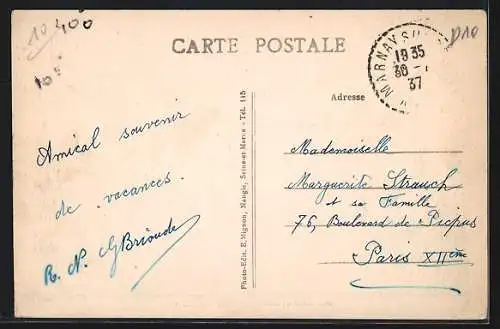 10 400
10⁵
D10
CARTE POSTALE
MARNAY SUR
18 35
30 -
37
Adresse
Photo-Edit. E. Mignon, Nangis, Seine-et-Marne - Tél. 115
Amical souvenir
de vacances.
R. N. GBrioude
Mademoiselle
Marguerite Strauch
et sa Famille
76, Boulevard de Picpus
Paris XIIème